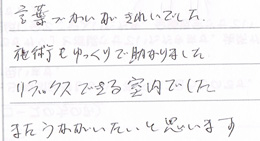 言葉づかいがきれいでした.
施術もゆっくりで助かりました
リラックスできる室内でした
またうかがいたいと思います